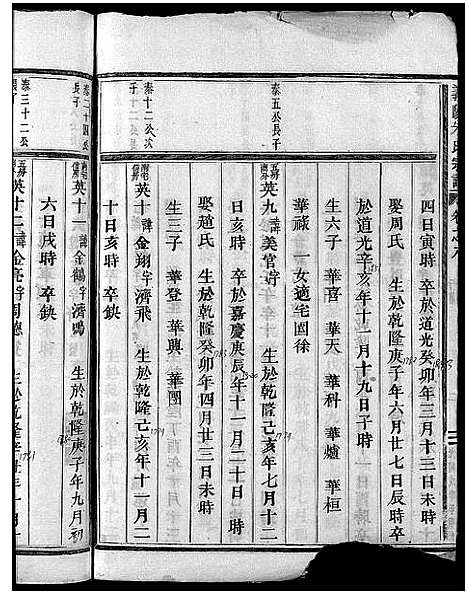 四日寅時 卒於道光癸卯年三月十三日未時
1843
娶周氏 生於乾隆庚子年六月廿七日辰時卒
1780
於道光辛亥年十二月十九日子時
1851
生六子 華喜 華天 華科 華爐 華桓
華祿 一女適宅園徐
泰五公長子
英九 諱美官字 生於乾隆己亥年七月十二
1779
日亥時 卒於嘉慶庚辰年十一月二十日
1820
娶趙氏 生於乾隆癸卯年四月廿三日未時
1783
生三子 華登 華興 華團
泰十二公次子
英十 諱金翔字濟飛 生於乾隆己亥年十一月二
1779
十日亥時 卒缺
泰二十四公長子
英十一 諱金鶴字濟鳴 生於乾隆庚子年九月初
1780
六日戌時 卒缺
泰三十二公
英十二 諱金亮字周總 生於乾隆辛丑年
1781